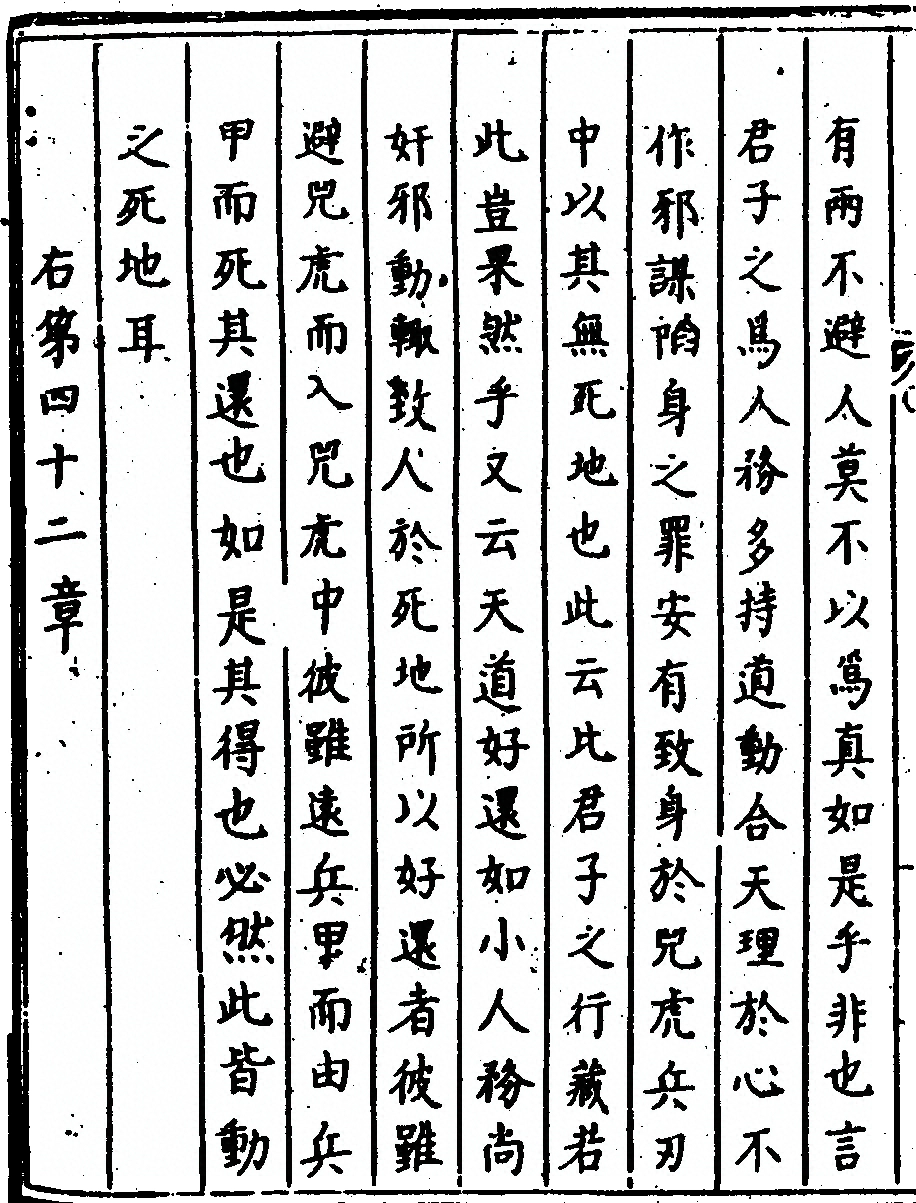 有兩不避人莫不以爲真如是乎非也言
君子之爲人務多持道動合天理於心不
作邪謀陷身之罪安有致身於兕虎兵刃
中以其無死地也此云比君子之行藏若
此豈果然乎又云天道好還如小人務尚
奸邪動輙致人於死地所以好還者彼雖
避兕虎而入兕虎中彼雖遠兵甲而由兵
甲而死其還也如是其得也必然此皆動
之死地耳
右第四十二章